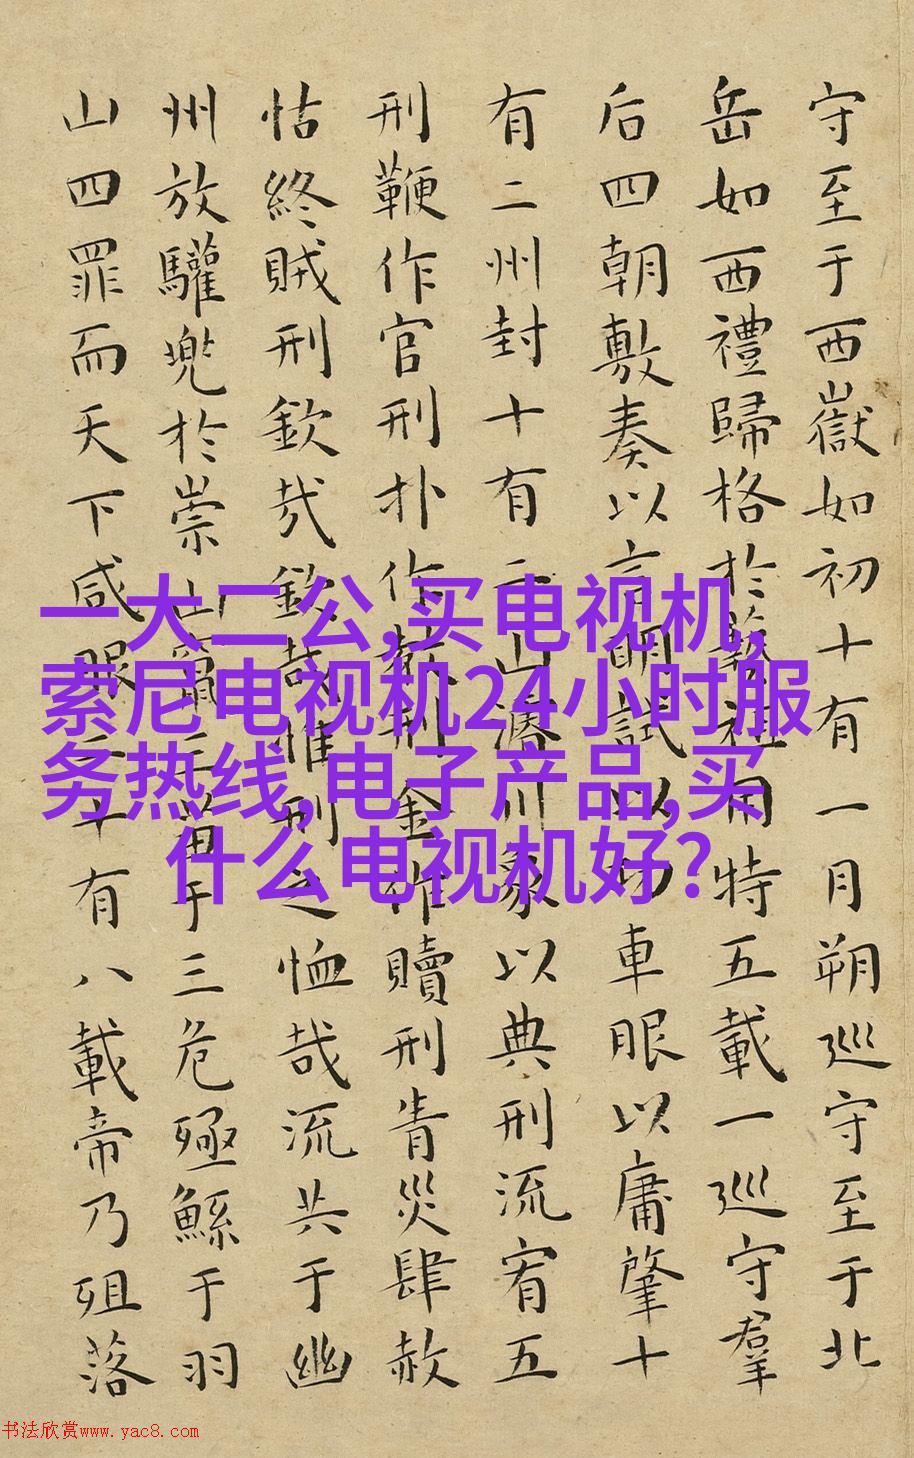 守至于西嶽如初十有一月朔巡守至于北
岳如西禮歸格於藝祖用特五載一巡守羣
后四朝敷奏以言明試以功車服以庸肇十
有二州封十有二山濬川象以典刑流宥五
刑鞭作官刑扑作教刑金作贖刑眚災肆赦
怙終賊刑欽哉欽哉惟刑之恤哉流共于幽
州放驩兜於崇山竄三苗于三危殛鯀于羽
山四罪而天下咸服二十有八載帝乃殂落
一大二公,买电视机,
索尼电视机24小时服
务热线,电子产品,买
什么电视机好?
书法欣赏www.yac8.com